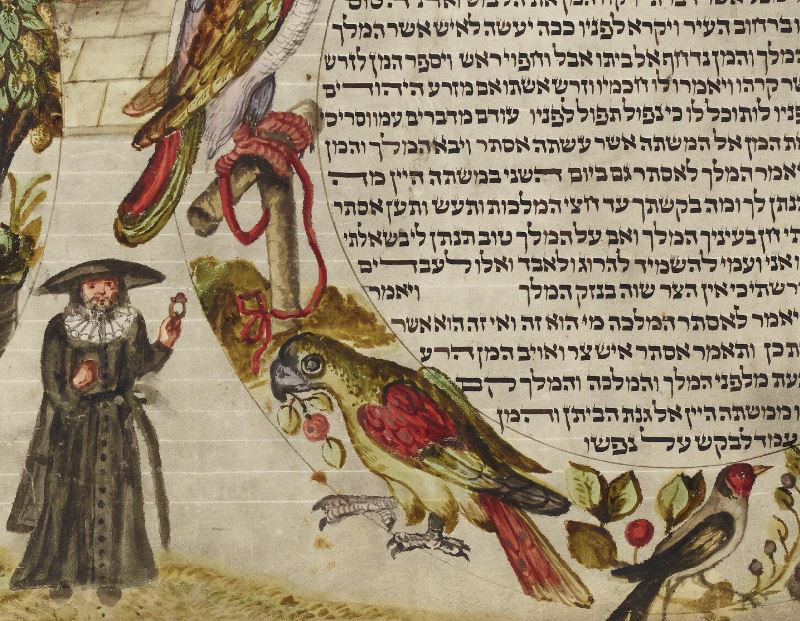 ברחוב העיר ויקרא לפניו ככה יעשה לאיש אשר המלך
המלך והמן נדחף אל ביתו אבל וחפוי ראש ויספר המן לזרש
אשר קרהו ויאמרו לו חכמיו וזרש אשתו אם מזרע היהודים
לפניו לא תוכל לו כי נפול תפול לפניו עודם מדברים עמו וסריסי
את המן אל המשתה אשר עשתה אסתר ויבא המלך והמן
יאמר המלך לאסתר גם ביום השני במשתה היין מה
תנתן לך ומה בקשתך עד חצי המלכות ותעש ותען אסתר
תי חן בעיניך המלך ואם על המלך טוב תנתן לי בשאלתי
אני ועמי להשמיד להרוג ולאבד ואלו לעבדים
רשתי כי אין הצר שוה בנזק המלך ויאמר
יאמר לאסתר המלכה מי הוא זה ואי זה הוא אשר
כן ותאמר אסתר איש צר ואויב המן הרע
עת מלפני המלך והמלכה והמלך קם
ממשתה היין אל גנת הביתן והמן
עמד לבקש על נפשו